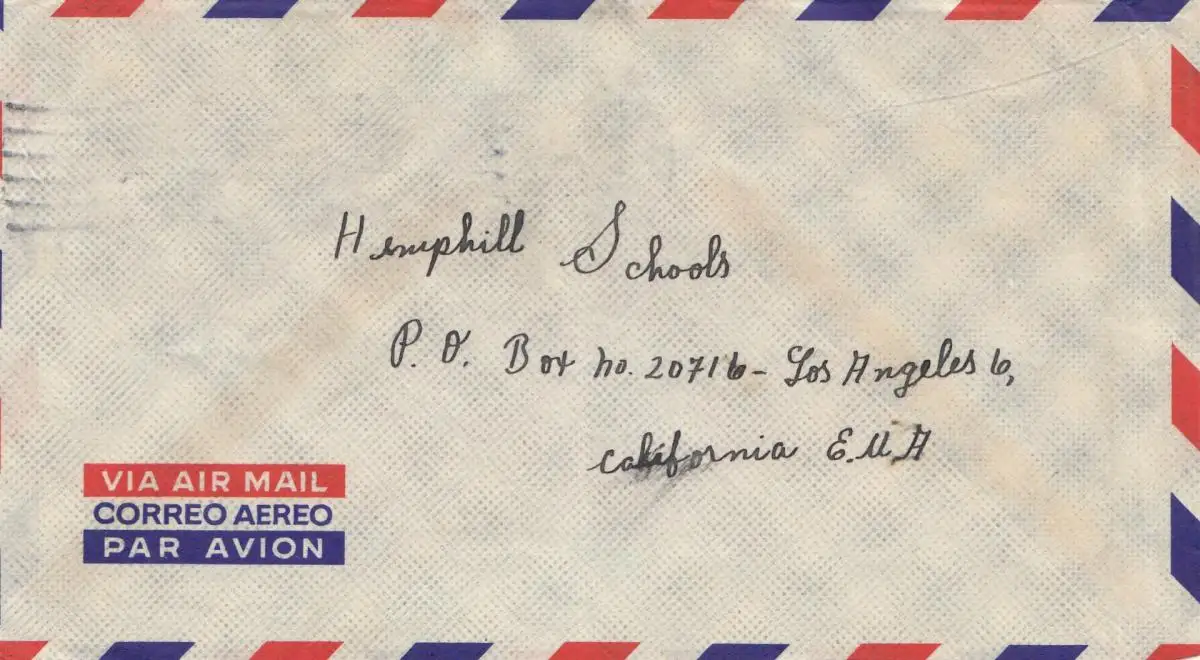 Hemphill Schools
P.O. Box no. 20716 - Los Angeles 6,
california E.U.A
VIA AIR MAIL
CORREO AEREO
PAR AVION